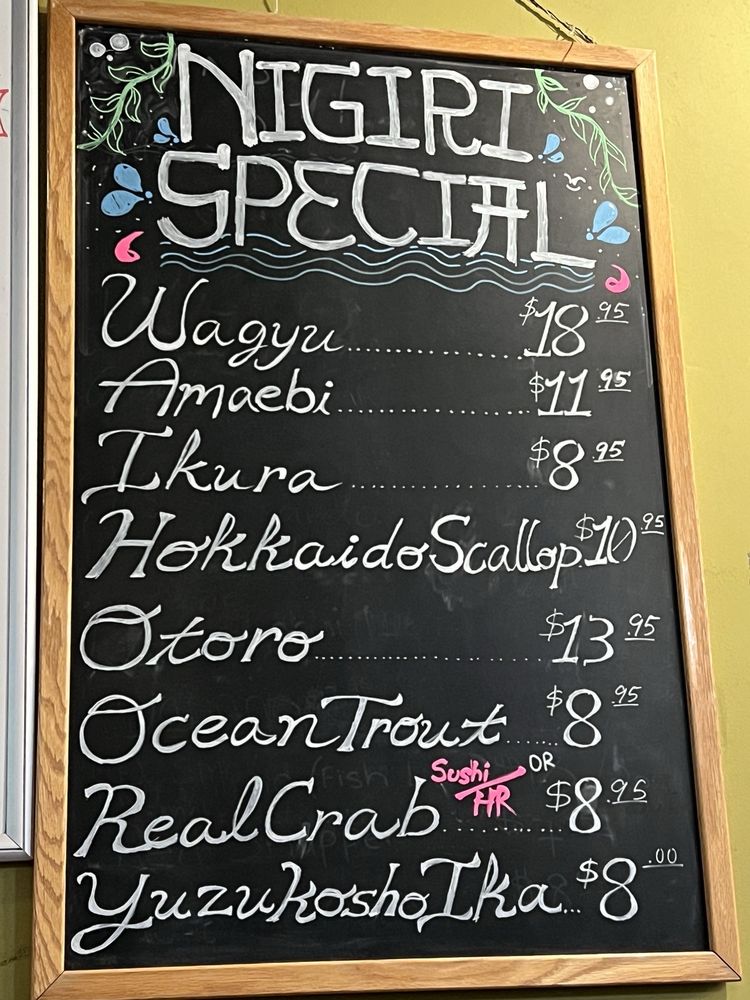 NIGIRI
SPECIAL
Wagyu.................$18.95
Amaebi.................$11.95
Ikura.................$8.95
Hokkaido Scallop.$10.95
Otoro.................$13.95
Ocean Trout......$8.95
Real Crab Sushi/HR OR..........$8.95
Yuzukosho Ika...$8.00